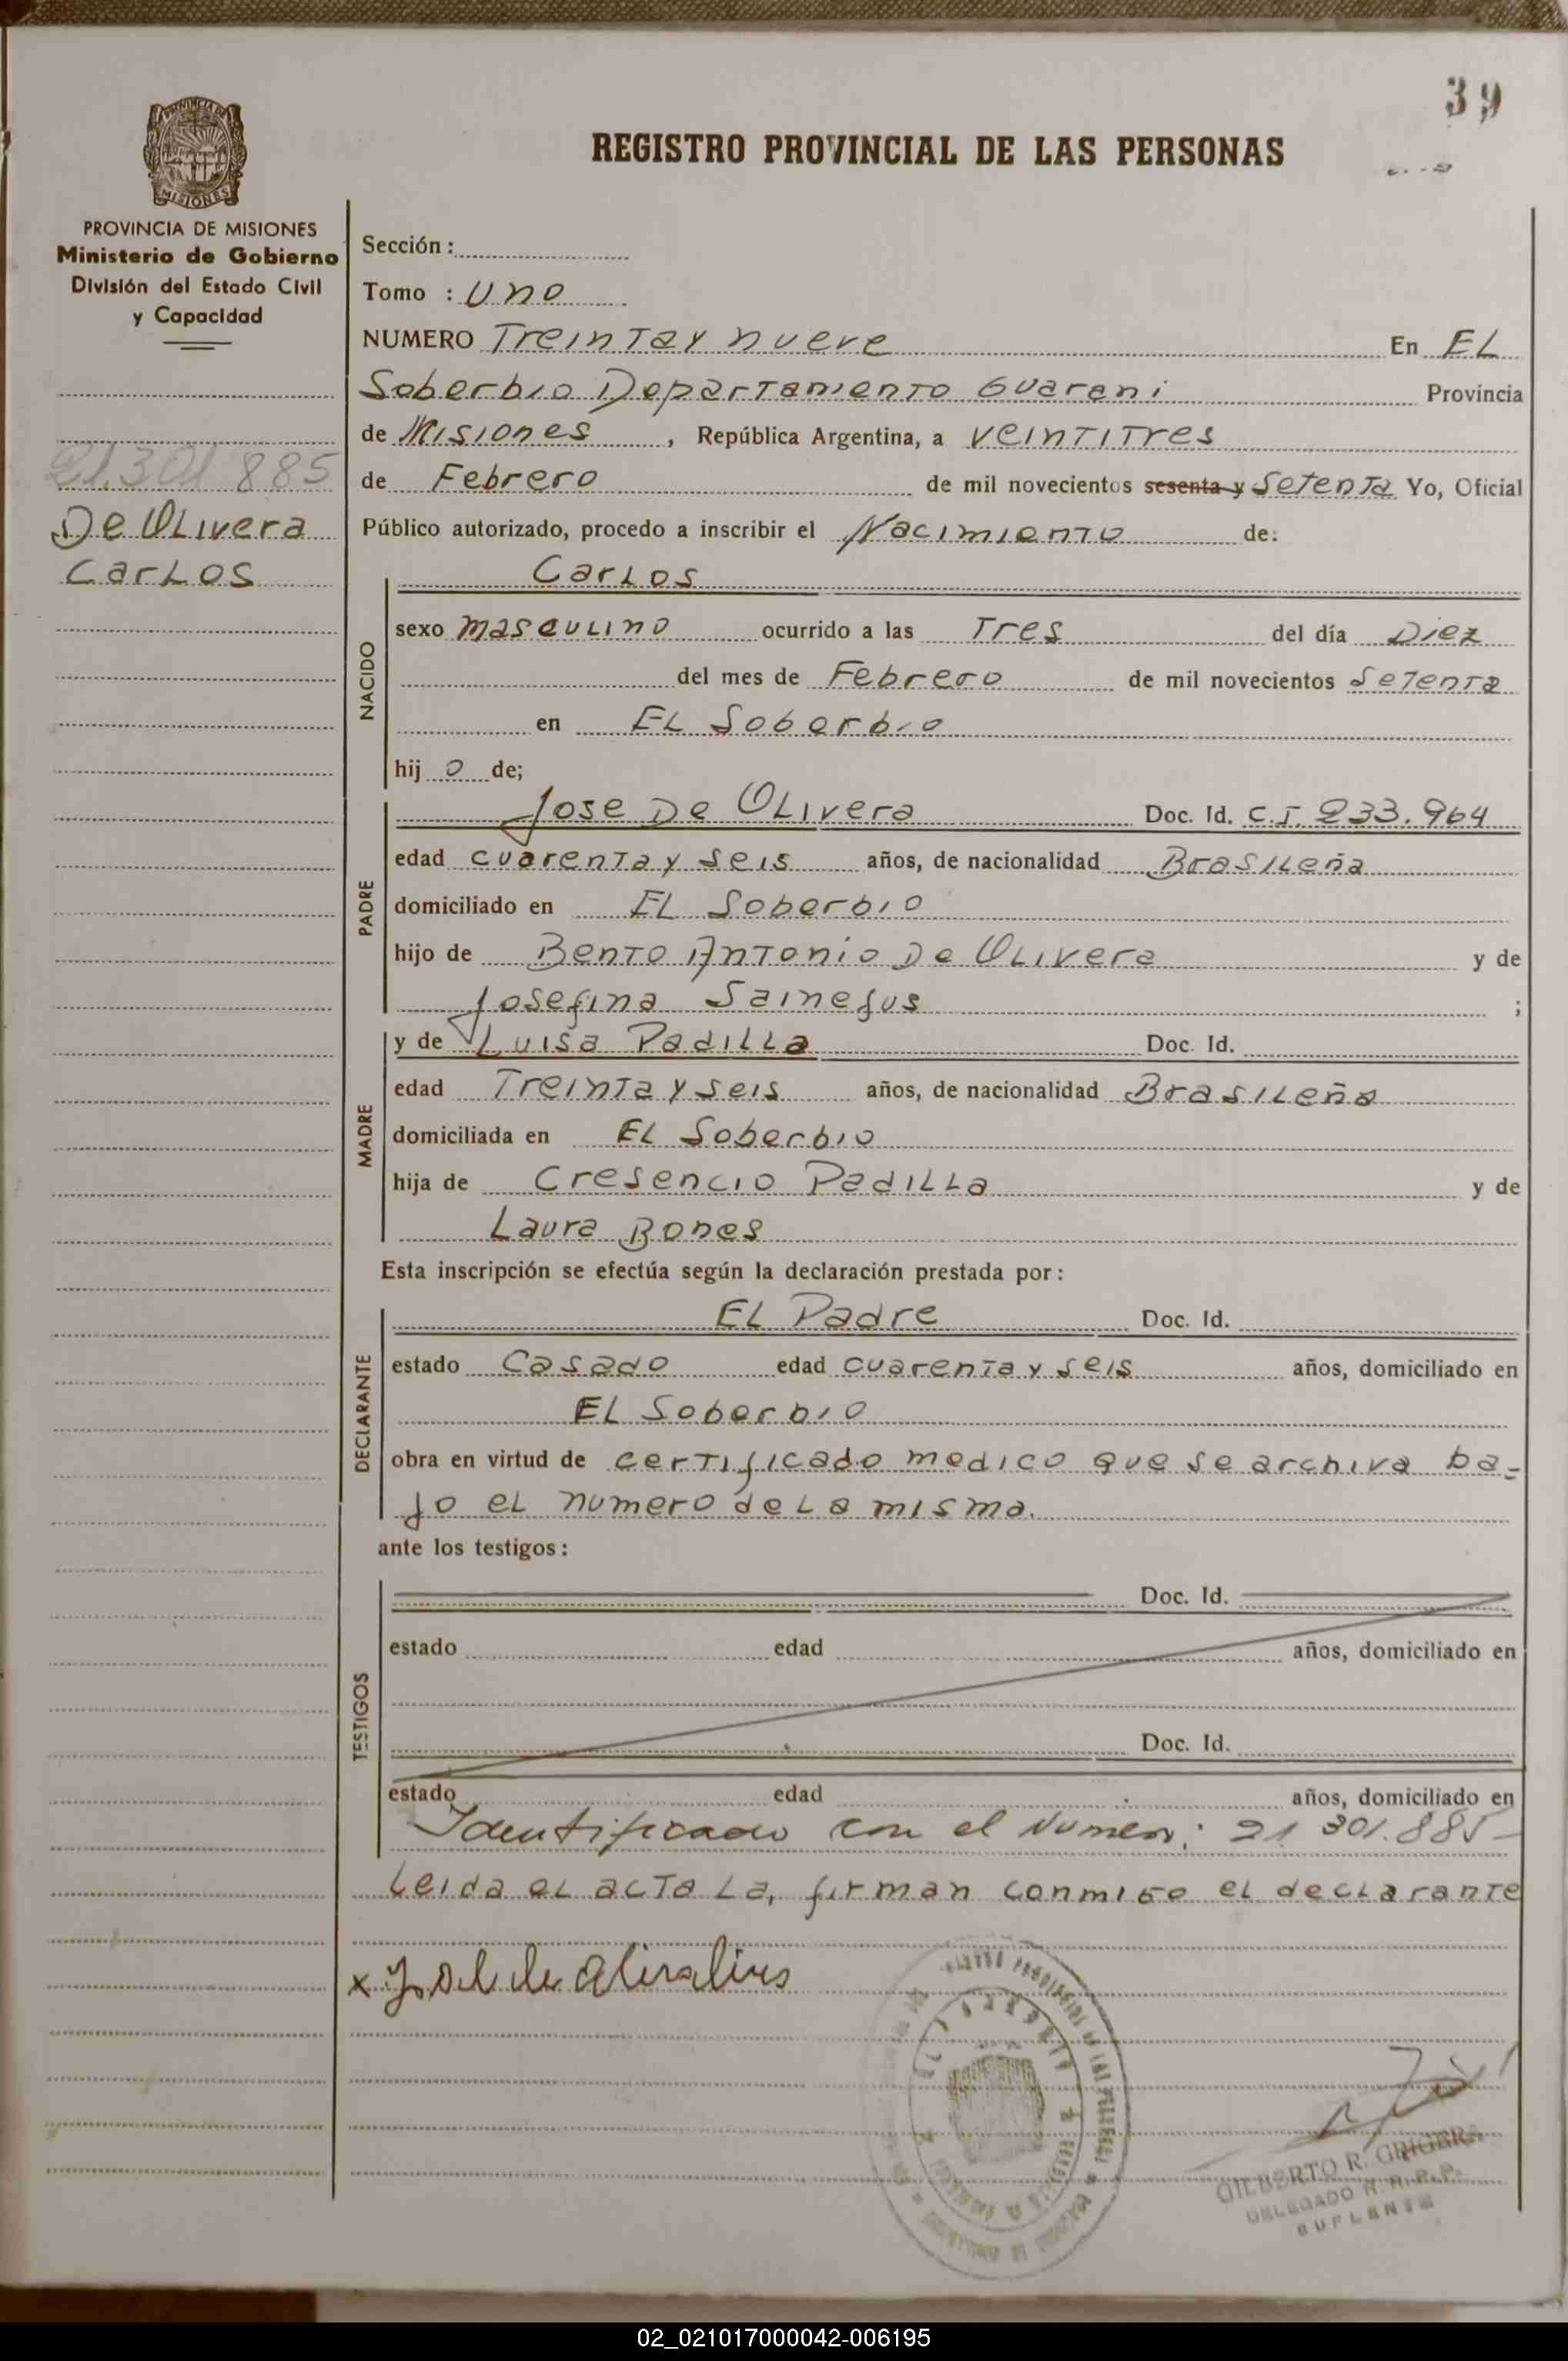 39
REGISTRO PROVINCIAL DE LAS PERSONAS
PROVINCIA DE MISIONES
Ministerio de Gobierno
División del Estado Civil
y Capacidad
21.301 885
De Olivera
Carlos
Sección :
Tomo : Uno
NUMERO Treinta y nueve En EL
Soberbio Departamento Guarani Provincia
de Misiones , República Argentina, a veintitres
de Febrero de mil novecientos sesenta y Setenta Yo, Oficial
Público autorizado, procedo a inscribir el Nacimiento de:
NACIDO
Carlos
sexo masculino ocurrido a las Tres del día Diez
del mes de Febrero de mil novecientos Setenta
en EL Soberbio
hij o de;
PADRE
Jose De Olivera Doc. Id. C.I. 233.964
edad cuarenta y seis años, de nacionalidad Brasileña
domiciliado en EL Soberbio
hijo de Bento Antonio De Olivera y de
Josefina Sainejus ;
MADRE
y de Luisa Padilla Doc. Id.
edad Treinta y seis años, de nacionalidad Brasileña
domiciliada en EL Soberbio
hija de Cresencio Padilla y de
Laura Bones
Esta inscripción se efectúa según la declaración prestada por :
DECLARANTE
EL Padre Doc. Id.
estado Casado edad cuarenta y seis años, domiciliado en
EL Soberbio
obra en virtud de certificado medico que se archiva ba-
jo el numero de la misma.
ante los testigos :
TESTIGOS
Doc. Id.
estado edad años, domiciliado en
Doc. Id.
estado edad años, domiciliado en
Identificado con el Numero: 21 301.885-
Leida el acta la, firman conmigo el declarante
x
MISIONES
GILBERTO R. GRIGERA
DELEGADO R. P. P.
SUPLENTE
02_021017000042-006195